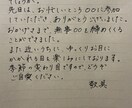 先日はお忙しいところ〇〇に参加
していただき、ありがとうございました。
おかげさまで、無事〇〇を締めくくる
ことができました。
また近いうちに、ゆっくりお目に
かかれる日を楽しみにしております。
季節の変わり目ですが、どうぞ
ご自愛ください。
敬美